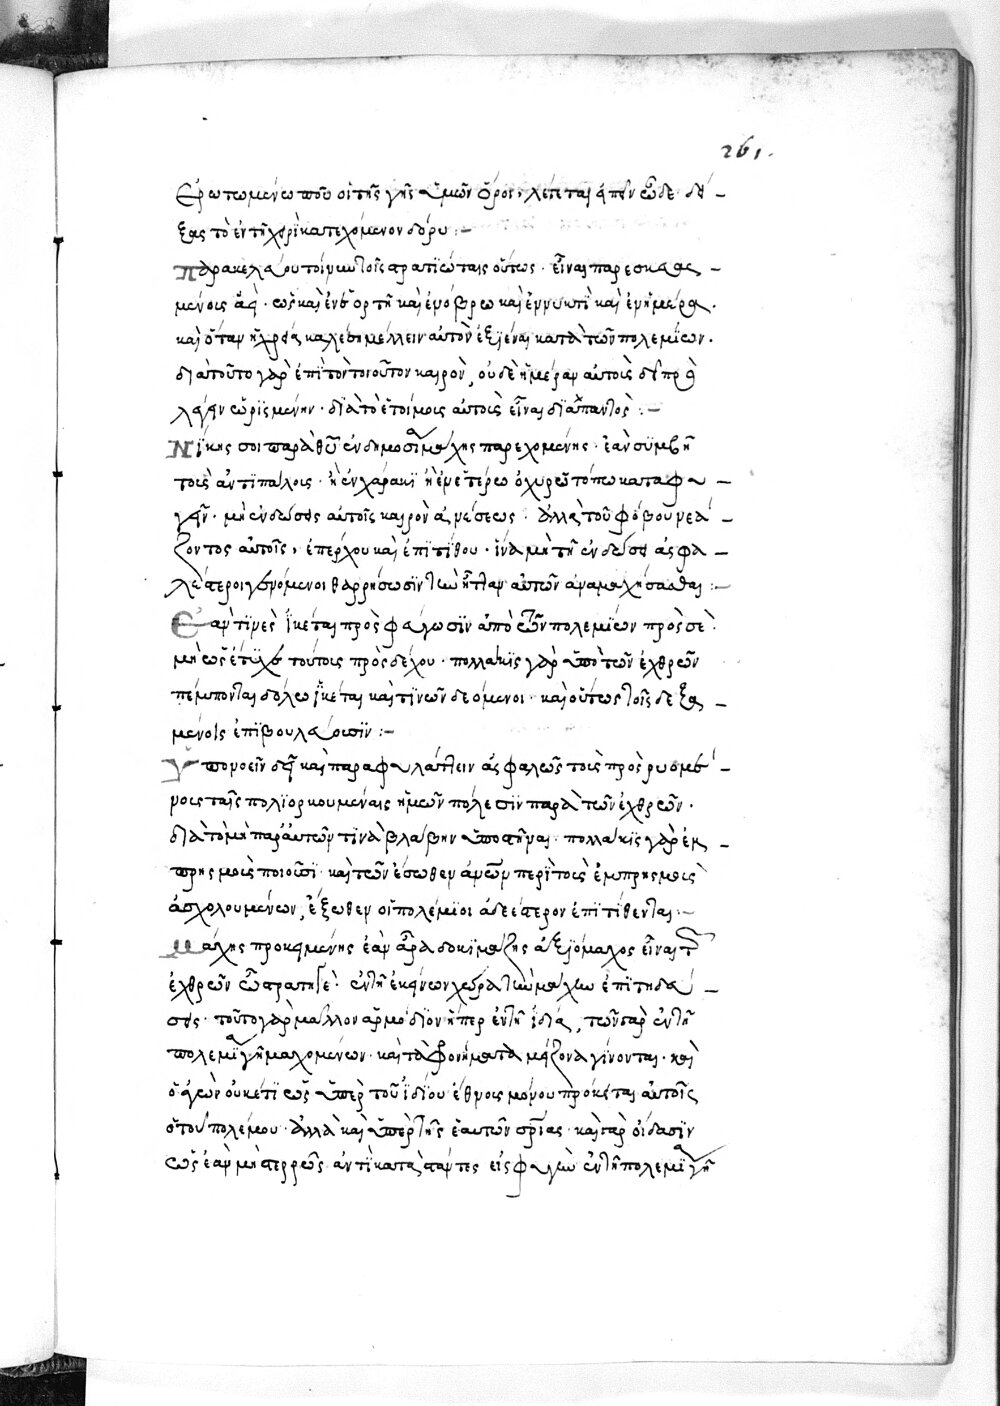 261.
Ἐρωτωμένω ποῦ οἱ τῆς γῆς ὑμῶν ὅροι, λέγεται εἰπεῖν ὧδε δεί-
ξας τὸ ἐν τῆ χειρὶ κατεχόμενον δόρυ:-
Παρακελεύου τοίνυν τοῖς στρατιώταις οὕτως· εἶναι παρεσκευασ-
μένοις ἀεὶ· ὡς καὶ ἐν ἑορτῆ καὶ ἐν ὄμβρω καὶ ἐν νυκτὶ καὶ ἐν ἡμέρα·
καὶ ὅταν ἡ χρεία καλέση μέλλειν αὐτὸν ἐξιέναι κατὰ τῶν πολεμίων·
διὰ τοῦτο γὰρ ἐπὶ τὸν τοιοῦτον καιρὸν, οὐδὲ ἡμέραν αὐτοῖς δεῖ προ
λέγειν ὡρισμένην· διὰ τὸ ἑτοίμοις αὐτοὺς εἶναι διαπαντὸς:-
Νίκης σοι παρὰ θεοῦ ἐν δημοσία μάχης παρεχομένης· ἐὰν συμβῆ
τοῖς ἀντιπάλοις· ἢ ἐν χάρακι ἢ ἐν ἑτέρω ὀχυρῶ τόπω καταφυ-
γεῖν· μὴ ἐνδώσης αὐτοῖς καιρὸν ἀνέσεως· ἀλλὰ τοῦ φόβου νεά-
ζοντος αὐτοῖς, ἐπέρχου καὶ ἐπιτίθου· ἵνα μὴ τῆ ἐνδόσει ἀσφα-
λέστεροι γενόμενοι θαρρήσωσιν τὴν ἧτταν αὐτῶν ἀναμαχήσασθαι:-
Ἐάν τινες ἱκέται πρὸς φύγωσιν ἀπὸ τῶν πολεμίων πρὸς σὲ·
μὴ ὡς ἔτυχε τούτοις πρὸσδέχου· πολλάκις γὰρ ὑπὸ τῶν ἐχθρῶν
πέμπονται δόλω ἱκέται καὶ τινῶν δεόμενοι· καὶ οὕτως τοῖς δεξα-
μένοις ἐπιβουλεύουσιν:-
Ὑπονοεῖν δεῖ καὶ παραφυλάττειν ἀσφαλῶς τοὺς πρὸσρυομέ-
νους ταῖς πολιορκουμέναις ἡμῶν πόλεσιν παρὰ τῶν ἐχθρῶν·
διὰ τὸ μὴ παρ' αὐτῶν τινὰ βλάβην ὑποστῆναι· πολλάκις γὰρ ἐμ-
πρησμοὺς ποιοῦσι· καὶ τῶν ἔσωθεν ἀμυνῶν περὶ τοὺς ἐμπρησμοὺς
ἀσχολουμένων, ἔξωθεν οἱ πολέμιοι ἀδεέστερον ἐπιτίθενται:-
Μάχης προκειμένης ἐὰν ἄρα δοκιμάζης ἀξιόμαχος εἶναι τῶν
ἐχθρῶν ὦ στρατηγὲ· ἐν τῆ ἐκείνων χώρα τὴν μάχην ἐπιτηδεύ-
σεις· τοῦτο γὰρ μᾶλλον ἁρμόδιον ἤπερ ἐν τῆ ἰδία, τῶν γὰρ ἐν τῆ
πολεμία γῆ μαχομένων· καὶ τὰ φρονήματα μείζονα γίνονται· καὶ
ὁ ἀγὼν οὐκέτι ὡς ὑπὲρ τοῦ ἰδίου ἔθνους μόνου πρόκειται αὐτοῖς
ὁ τοῦ πολέμου· ἀλλὰ καὶ ὑπὲρ τῆς ἑαυτῶν σωτηρίας· καὶ γὰρ οἴδασιν
ὡς ἐὰν μὴ στερρῶς ἀντικαταστάντες εἰς φυγὴν ἐν τῆ πολεμία γῆ